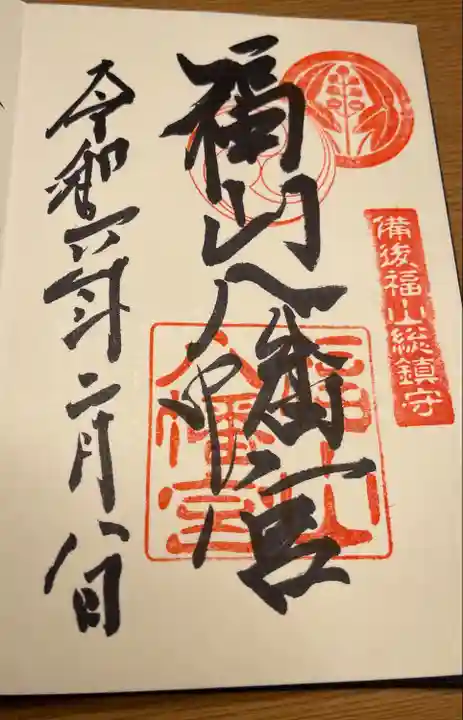 備後福山総鎮守
福山八幡宮
福山
八幡宮
令和六年二月八日